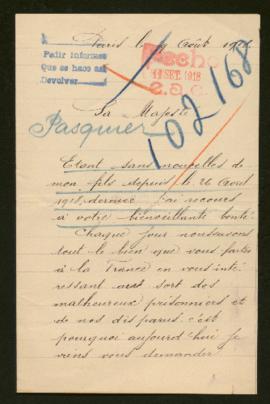 Paris le 9 Août
Pedir informes
Que se hace así
Devolver
Hecho
11 SET. 1918
102168
Sa Majesté
Pasquier
Etant sans nouvelles de
mon fils depuis le 26 Août
dernier j'ai recours
à votre bienveillante bonté
Chaque jour nous
tout le bien que vous faites
à la France en vous inté-
ressant au sort des
malheureux prisonniers et
de nos disparus c'est
pourquoi aujourd'hui je
viens vous demander